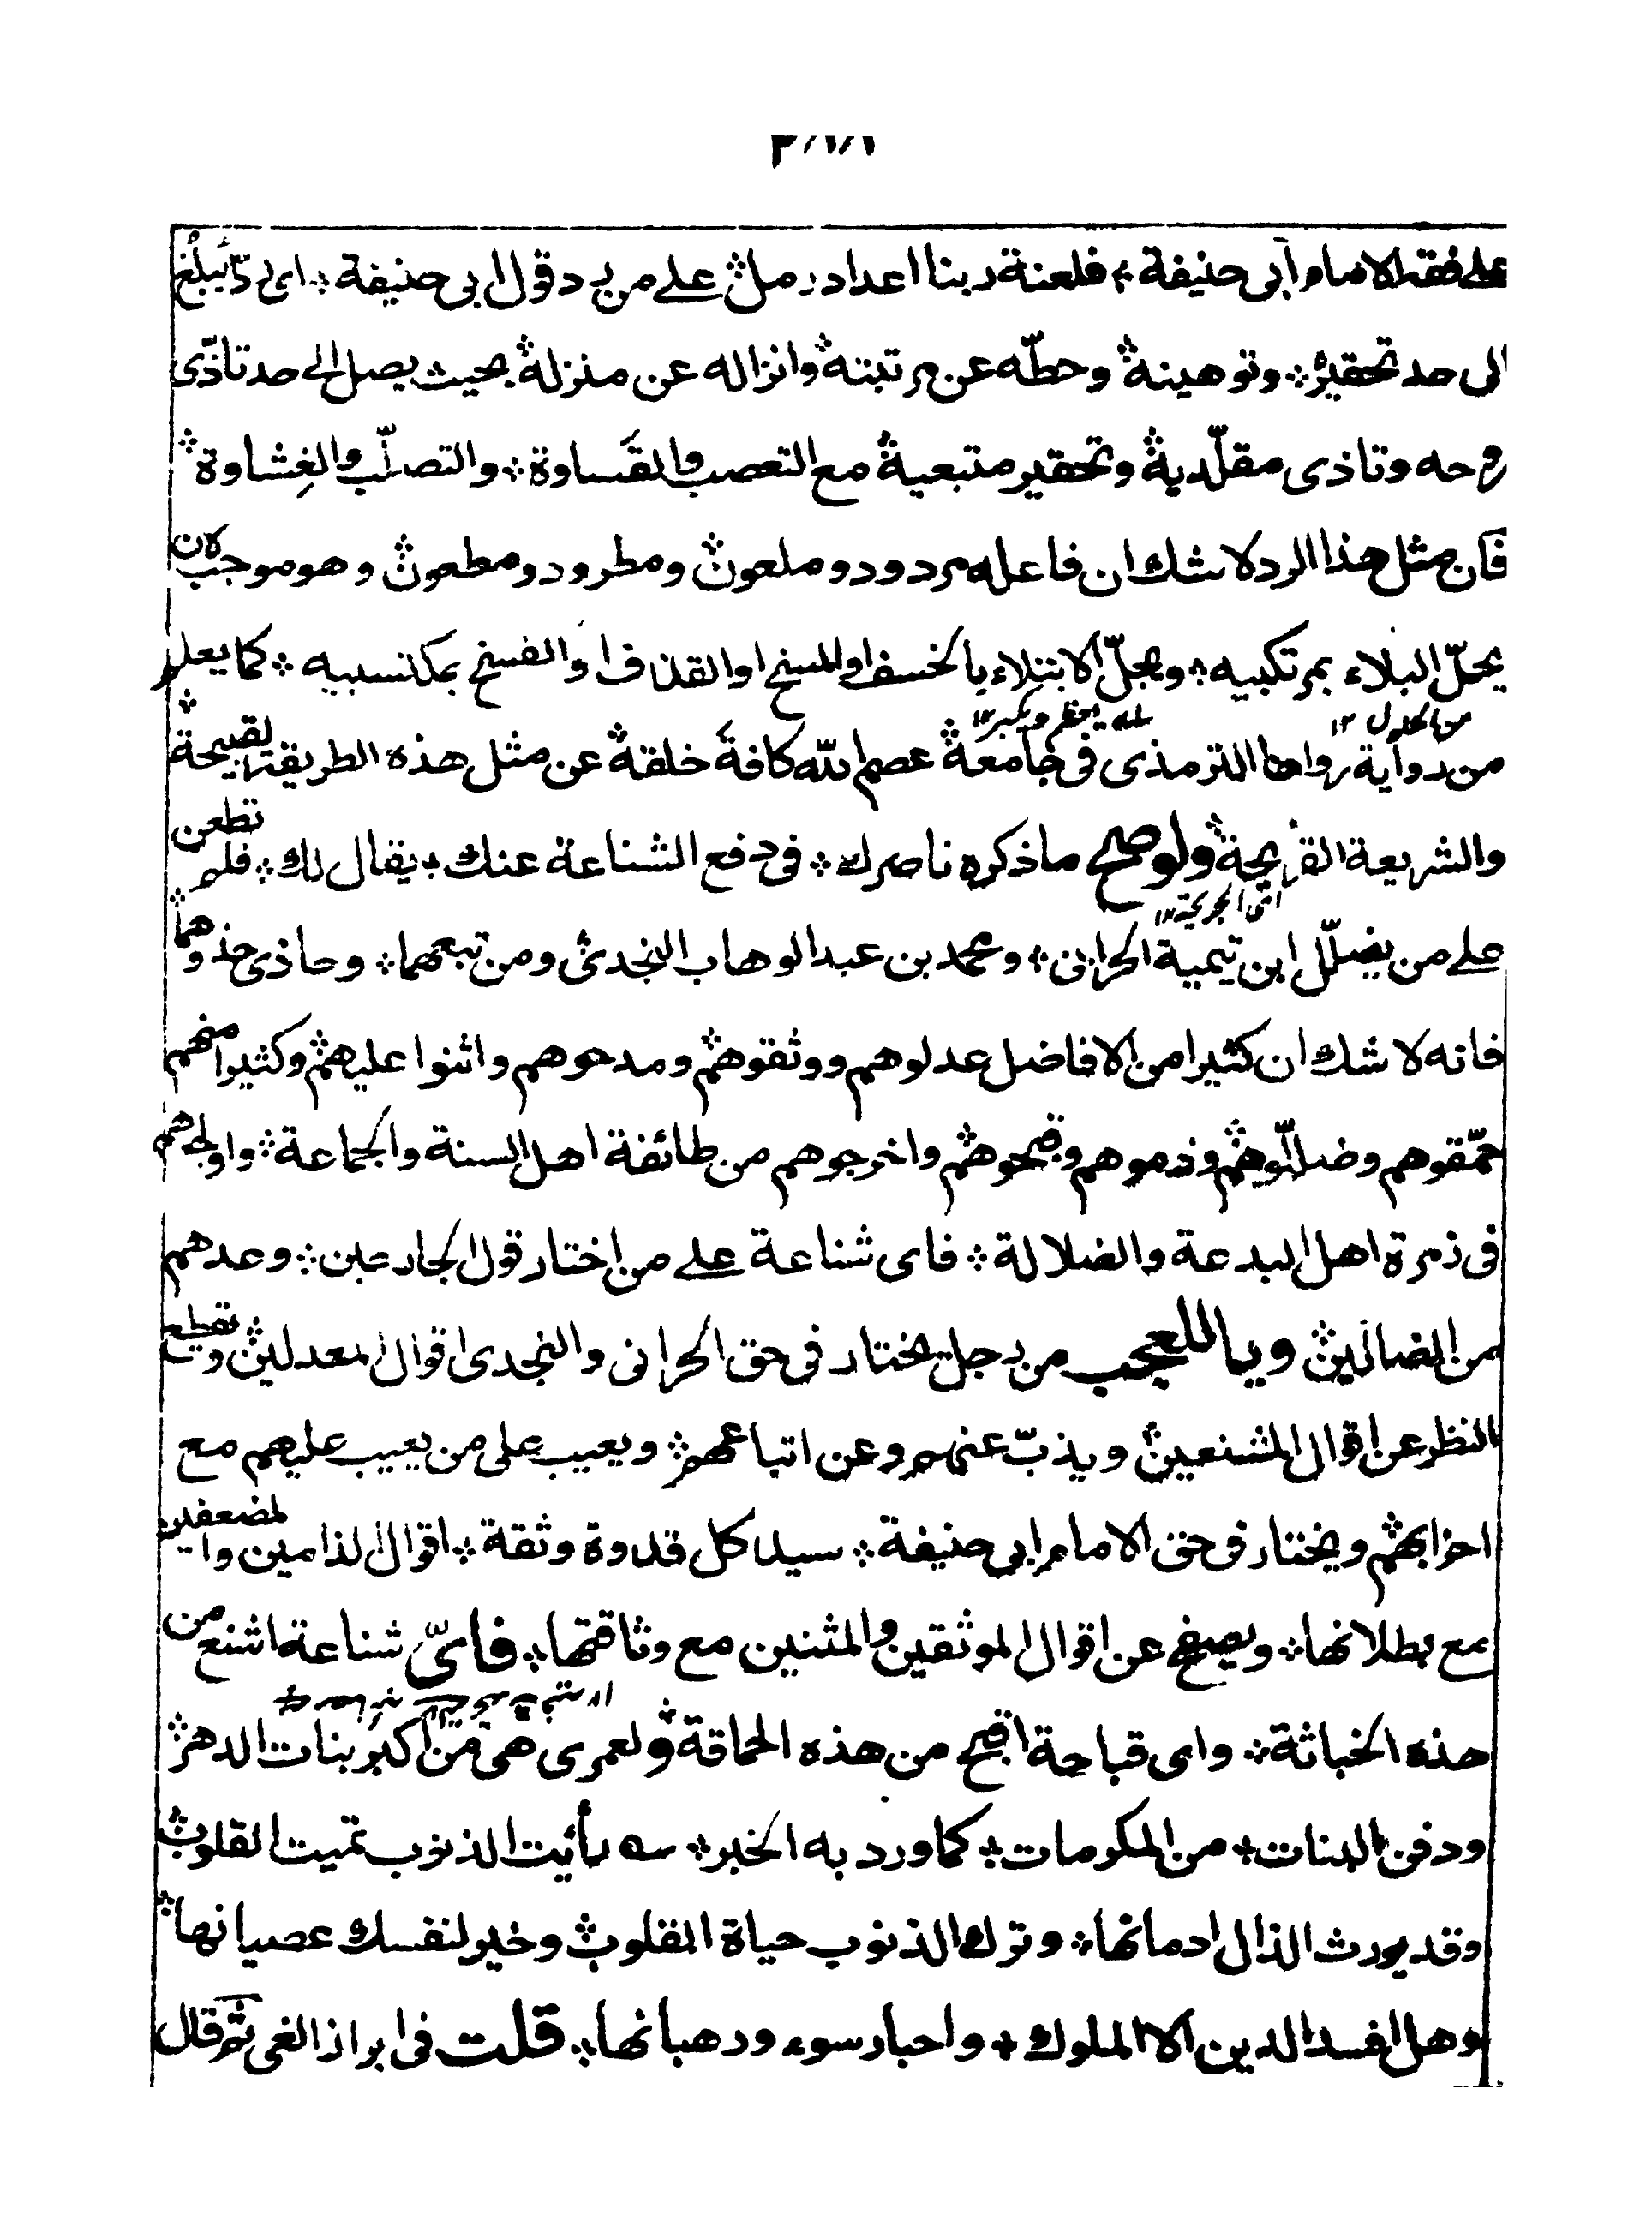 على فقه الامام ابى حنيفة ؞ فلعنة ربنا اعداد رمل ؞ على من رد قول ابى حنيفة ؞ اى ردّا يبلغ
الى حد تحقيره ؞ وتوهينه ؞ وحطّه عن مرتبته ؞ وانزاله عن منزلة ؞ بحيث يصل الى حد تاذّى
روحه وتاذى مقلّديه ؞ وتحقير متبعيه ؞ مع التعصب والقَساوة ؞ والتصلّب والغِشاوة ؞
فان مثل هذا الرد لا شك ان فاعله مردود وملعون ؞ ومطرود ومطعون ؞ وهو موجب لان
يحلّ البلاء بمرتكبيه ؞ ويجلّ الابتلاء بالخسف او المسخ او القذف او الفسخ بمكتسبيه ؞ كما يعلم
من الحلول ١٢ يعظم ويكبر ١٢
من رواية رواها الترمذى فى جامعه ؞ عصم الله كافة خلقه ؞ عن مثل هذه الطريقة القبيحة ؞
والشريعة القريحة ؞ ولو صح ما ذكره ناصرك ؞ فى دفع الشناعة عنك ؞ يقال لك ؞ فلم تطعن
اى الجريحة ١٢
على من يضلّل ابن تيمية الحرانى ؞ ومحمد بن عبد الوهاب النجدى ؞ ومن تبعهما ؞ وحاذى حذوهما ؞
فانه لا شك ان كثيرا من الافاضل عدلوهم ووثقوهم ؞ ومدحوهم واثنوا عليهم ؞ وكثيرا منهم
حمّقوهم وضلّلوهم ؞ وذموهم وقبحوهم ؞ واخرجوهم من طائفة اهل السنة والجماعة ؞ واولجوهم
فى زمرة اهل البدعة والضلالة ؞ فاى شناعة على من اختار قول الجارحين ؞ وعدهم
من الضالين ؞ ويا للعجب من رجل يختار فى حق الحرانى والنجدى اقوال المعدلين ؞ ويقطع
النظر عن اقوال المشنعين ؞ ويذبّ عنهم وعن اتباعهم ؞ ويعيب على من يعيب عليهم مع
احزابهم ؞ ويختار فى حق الامام ابى حنيفة ؞ سيد كل قدوة وثقة ؞ اقوال الذامين والمضعفين
مع بطلانها ؞ ويصفح عن اقوال الموثقين والمثنين مع وثاقتها ؞ فاىّ شناعة اشنع من
هذه الخباثة ؞ واى قباحة اقبح من هذه الحماقة ؞ ولعمرى هى من اكبر بنات الدهر ؞
ودفن البنات ؞ من المكرمات ؞ كما ورد به الخبر ؞ رأيت الذنوب تميت القلوب ؞
وقد يورث الذل ادمانها ؞ وترك الذنوب حياة القلوب ؞ وخير لنفسك عصيانها ؞
وهل افسد الدين الا الملوك ؞ واحبار سوء ورهبانها ؞ قلت فى ابراز الغى ثم قال